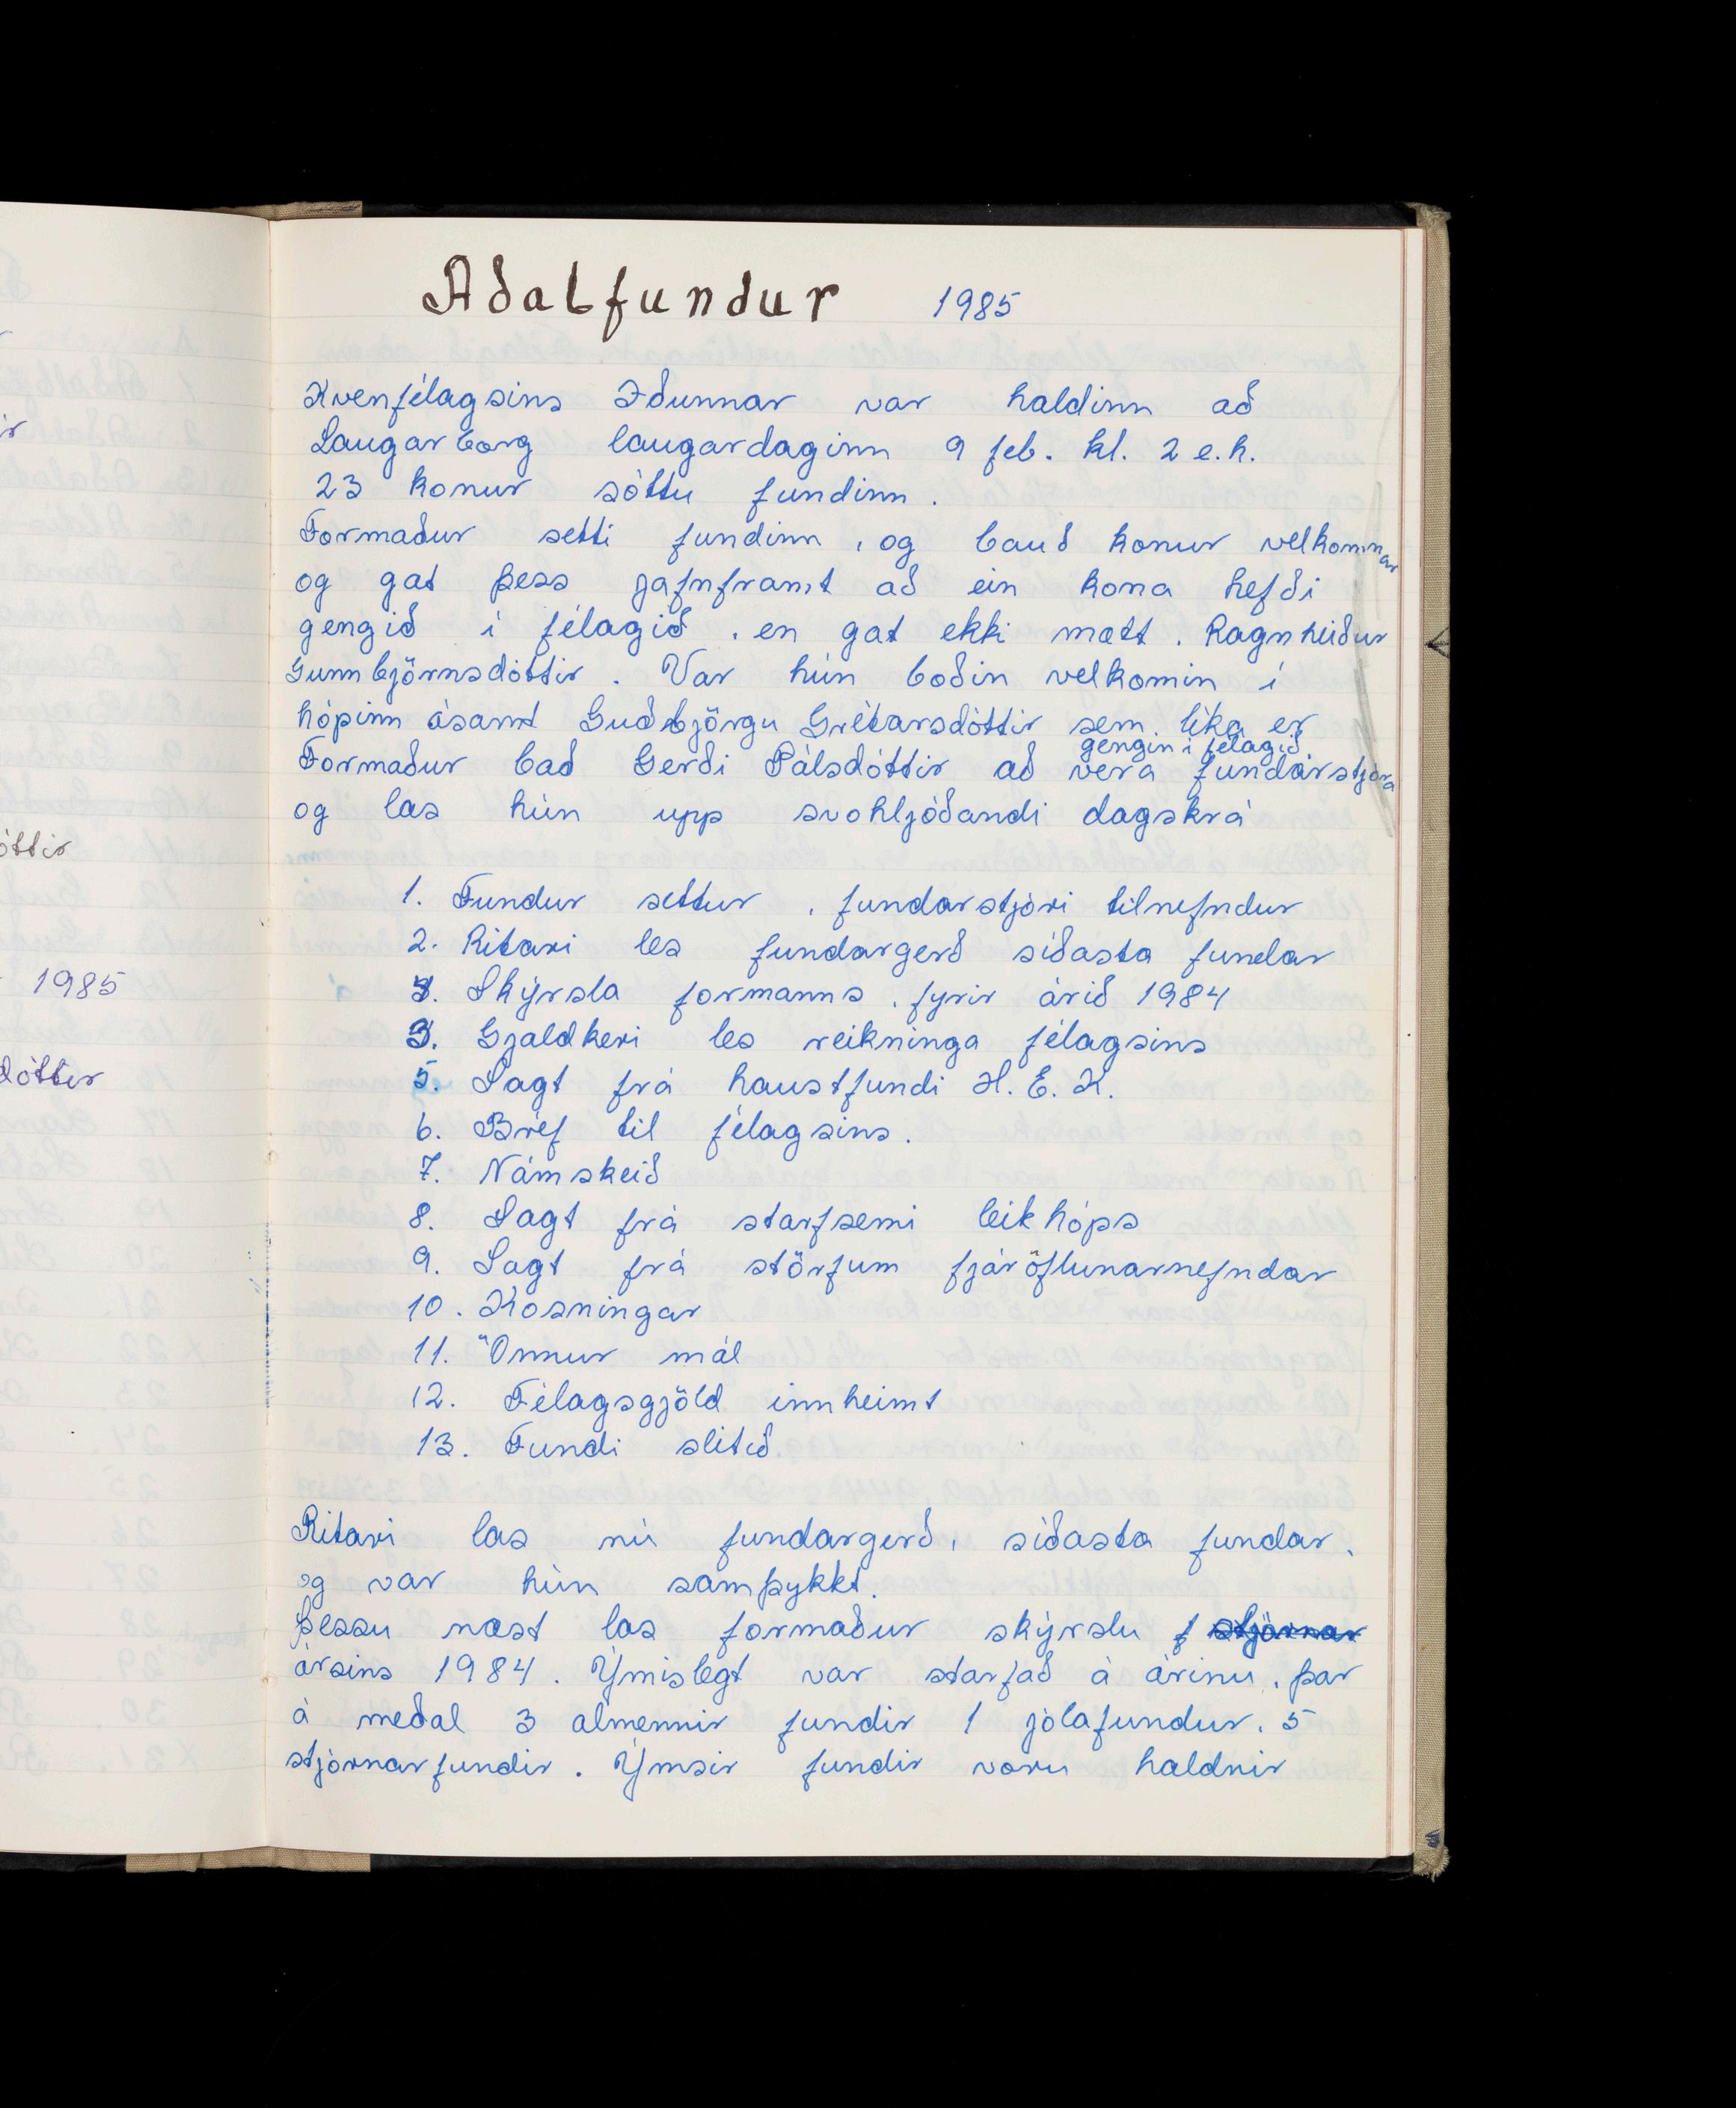 Aðalfundur 1985
Kvenfélagsins Iðunnar var haldinn að
Laugarborg laugardaginn 9 feb. kl. 2 e.h.
23 konur sóttu fundinn.
Formaður setti fundinn, og bauð konur velkomnar
og gat þess jafnframt að ein kona hefði
gengið í félagið, en gat ekki mætt. Ragnheiður
Gunnbjörnsdóttir. Var hún boðin velkomin í
hópinn ásamt Guðbjörgu Grétarsdóttir sem líka er
gengin í félagið.
Formaður bað Gerði Pálsdóttir að vera fundarstjóra
og las hún upp svohljóðandi dagskrá
1. Fundur settur, fundarstjóri tilnefndur
2. Ritari les fundargerð síðasta fundar
3. Skýrsla formanns, fyrir árið 1984
3. Gjaldkeri les reikninga félagsins
5. Sagt frá haustfundi H.E.K.
6. Bréf til félagsins.
7. Námskeið
8. Sagt frá starfsemi leikhóps
9. Sagt frá störfum fjáröflunarnefndar
10. Kosningar
11. Önnur mál
12. Félagsgjöld innheimt
13. Fundi slitið
Ritari las nú fundargerð, síðasta fundar,
og var hún samþykkt.
Þessu næst las formaður skýrslu f stjórnar
ársins 1984. Ýmislegt var starfað á árinu, þar
á meðal 3 almennir fundir 1 jólafundur, 5
stjórnarfundir. Ýmsir fundir voru haldnir
óttir
1985
dóttir